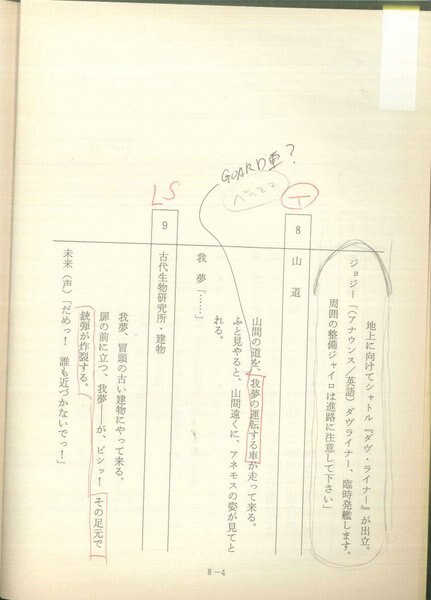 地上に向けてシャトル『ダヴ・ライナー』が出立。
ジョジー「（アナウンス／英語）ダヴライナー、臨時発艦します。
周囲の整備ジャイロは進路に注意して下さい」
T
8
山道
GUARD車?
山間の道を、我夢の運転する車が走って来る。
ふと見やると、山間遠くに、アネモスの姿が見てと
れる。
我夢「……」
LS
9
古代生物研究所・建物
我夢、冒頭の古い建物にやって来る。
扉の前に立つ、我夢――が、ビシッ！　その足元で
銃弾が炸裂する。
未来（声）「だめっ！　誰も近づかないでっ！」
8－4